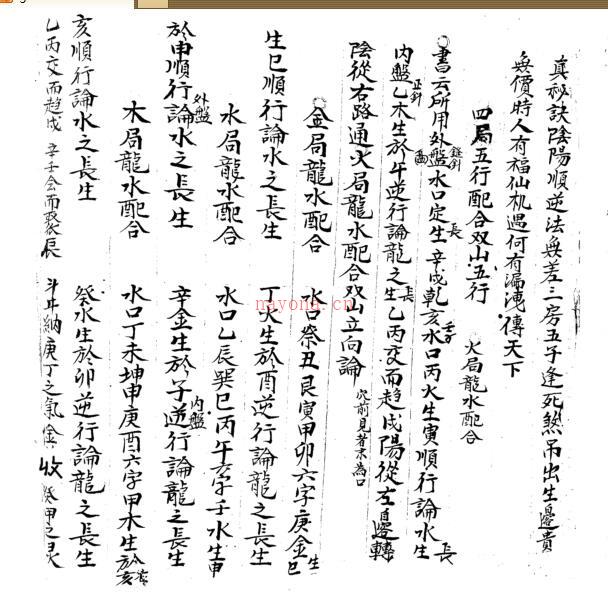 真秘訣陰陽順逆法無差三房五子逢死煞吊出生邊貴
無價時人有福仙机遇何有漏洩傳天下
四局五行配合双山五行 火局龍水配合
書云所用外盤縫針水口定生長辛戌乾亥壬子水口丙火生寅順行論水生長
內盤正針乙木生於午逆行論龍之生長乙丙交而趋戌陽從左邊轉
陰從右路通火局龍水配合双山立向論 穴前見者水為口
金局龍水配合 水口癸丑艮寅甲卯六字庚金生巳
生巳順行論水之長生 丁火生於酉逆行論龍之長生
水局龍水配合 水口乙辰巽巳丙午六字壬水生申
於申順行論外盤水之長生 辛金生於子逆行內盤論龍之長生
木局龍水配合 水口丁未坤申庚酉六字甲木生於亥
亥順行論水之長生 癸水生於卯逆行論龍之長生
乙丙交而趋戌 辛壬会而聚辰 斗牛納庚丁之氣 金收癸甲之灵
mayona.cn